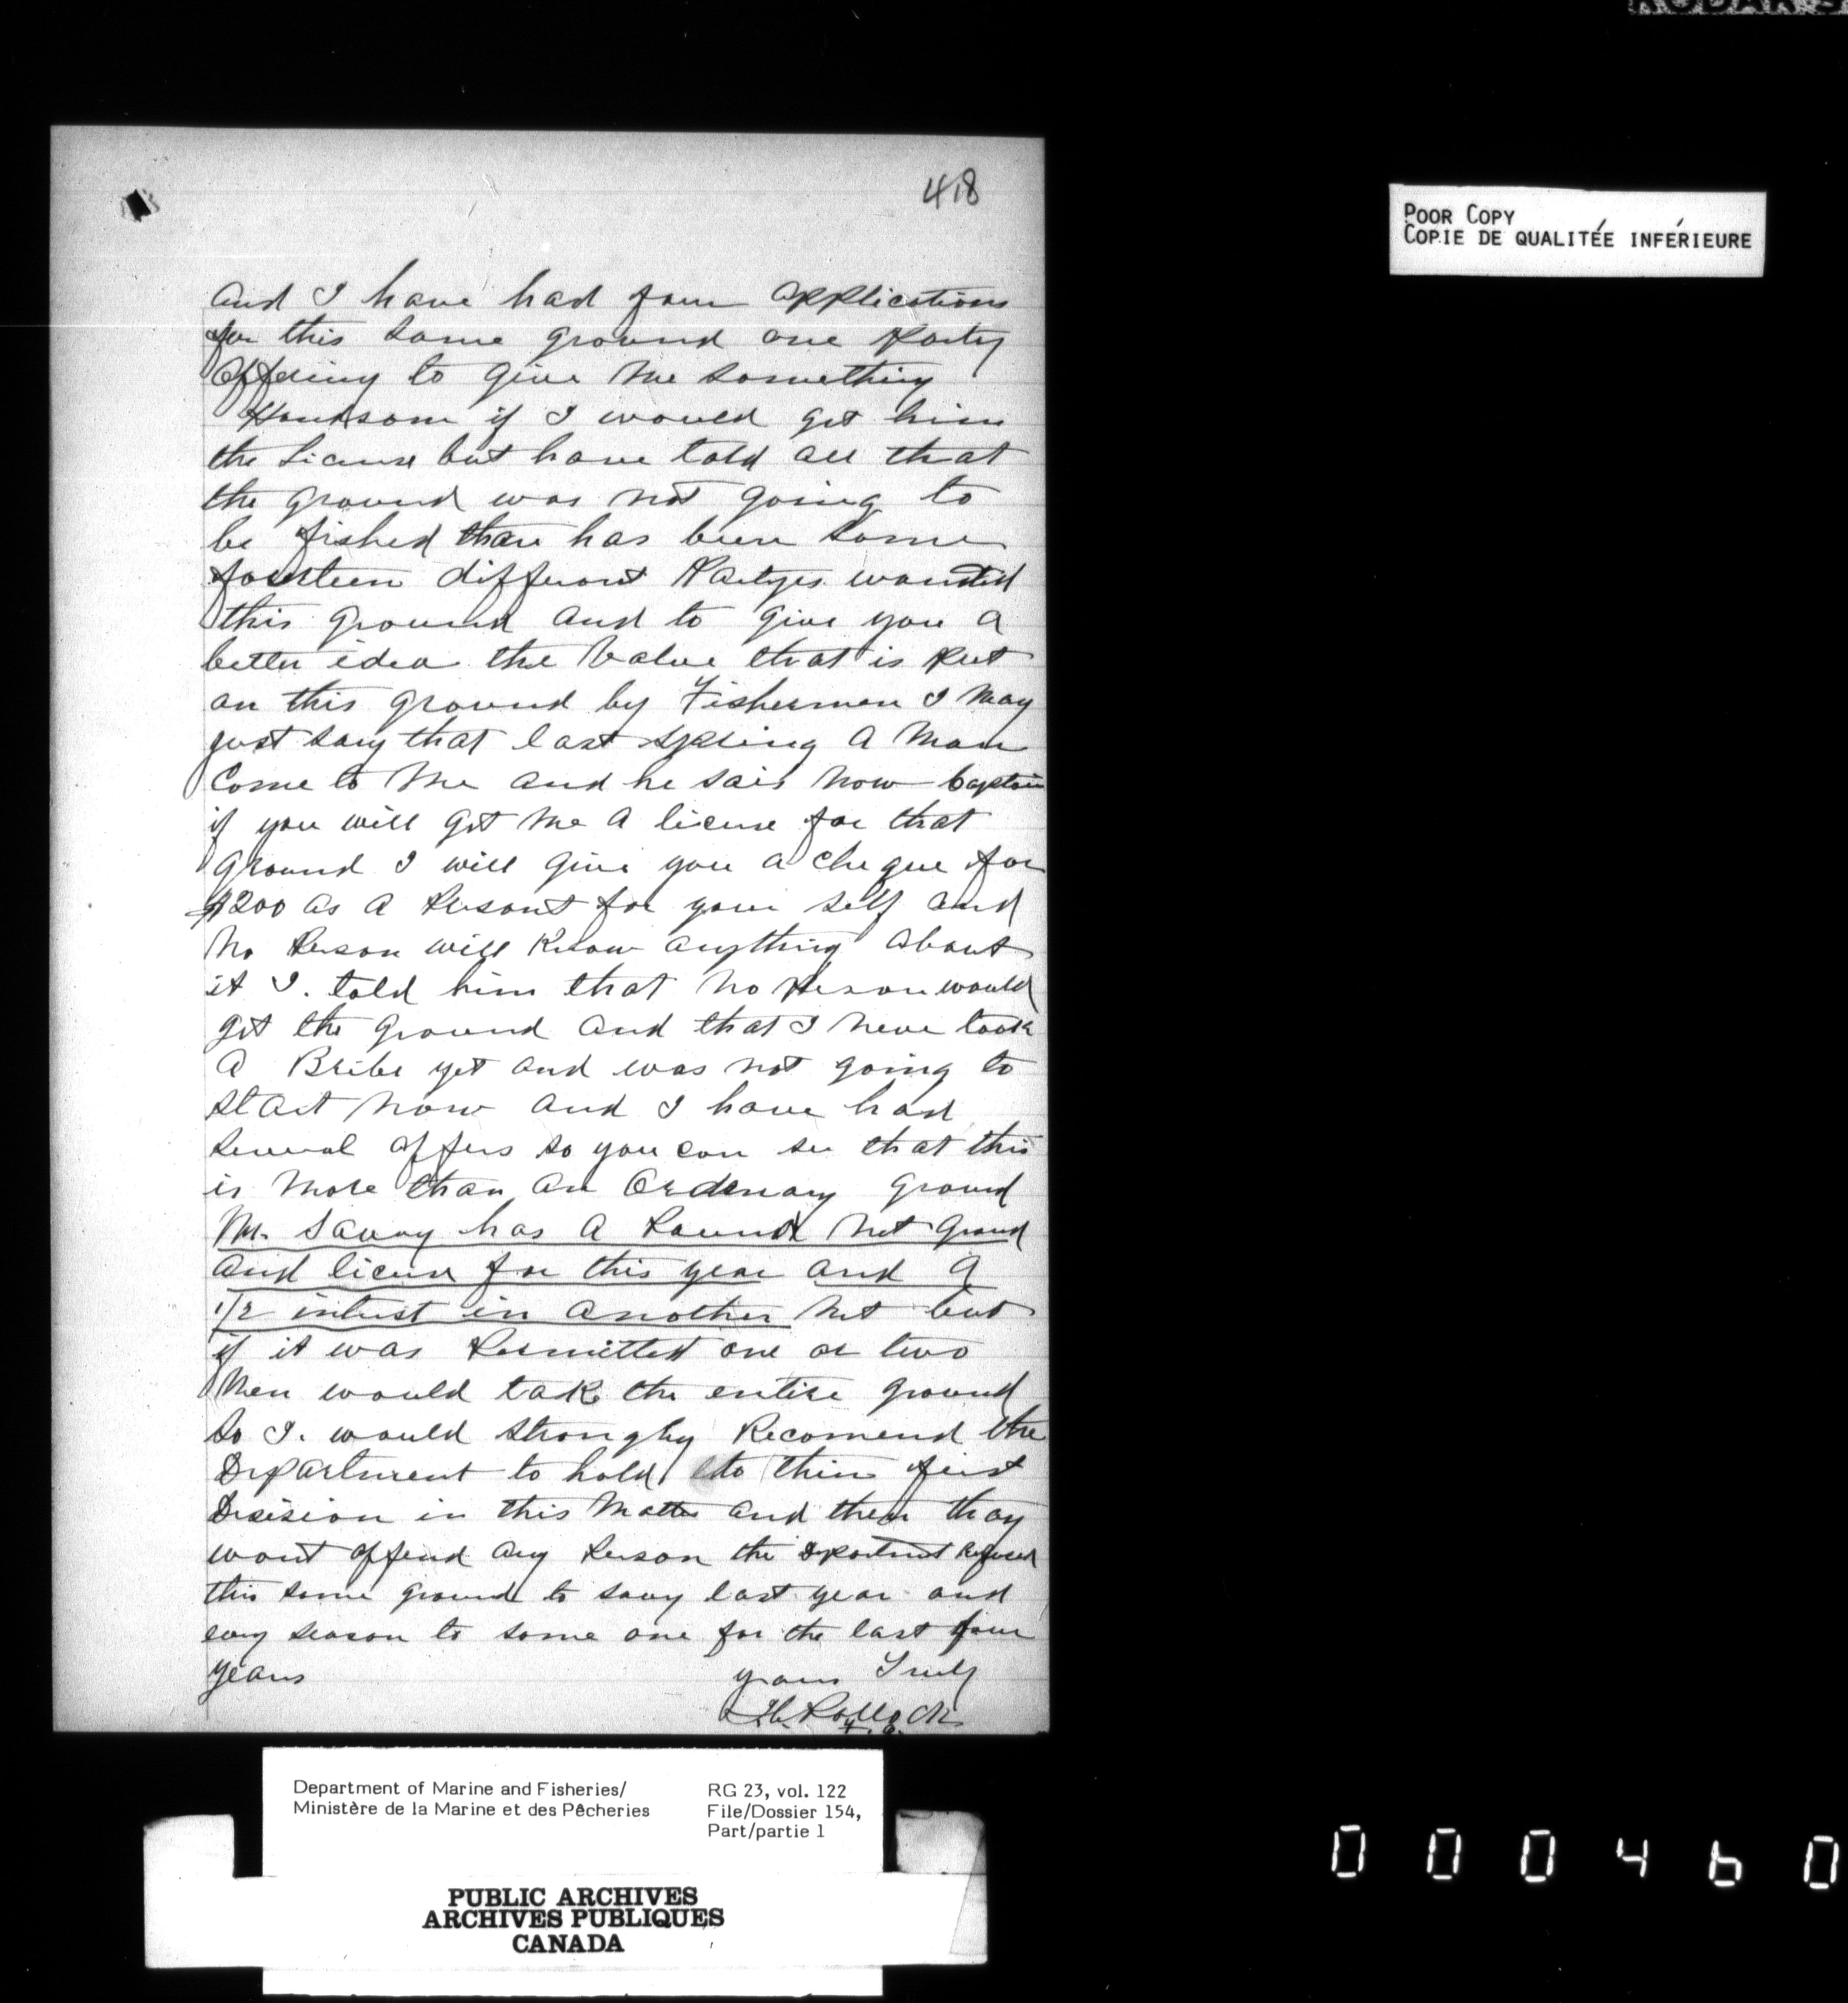 418
POOR COPY
COPIE DE QUALITÉE INFÉRIEURE
and I have had four applications
for this same ground one Party
offering to give me something
Handsom if I would get him
the License but have told all that
the ground was not going to
be fished thare has been some
fourteen different Partyes wanted
this ground and to give you a
better idea the Value that is Put
on this ground by Fishermen I may
just say that last Spring a man
Come to me and he said now Captain
if you will get me a license for that
ground I will give you a cheque for
$200 as a Presant for your self and
no Person will Know anything about
it I. told him that no Person would
get the ground and that I never took
a Bribe yet and was not going to
start now and I have had
several offers so you can see that this
is more than an Ordenary ground
Mr. Savoy has a Pound net ground
and license for this year and a
1/2 intrest in another net but
if it was Permitted one or two
men would take the entire ground
so I. would strongly Recomend the
Department to hold to thire first
Decision in this matter and then thay
wont offend any Person the Department Refused
this same ground to Savoy last year and
evry season to some one for the last four
years yours Truly
Pollock
F. O.
Department of Marine and Fisheries/
Ministère de la Marine et des Pêcheries
RG 23, vol. 122
File/Dossier 154,
Part/partie 1
PUBLIC ARCHIVES
ARCHIVES PUBLIQUES
CANADA
000460